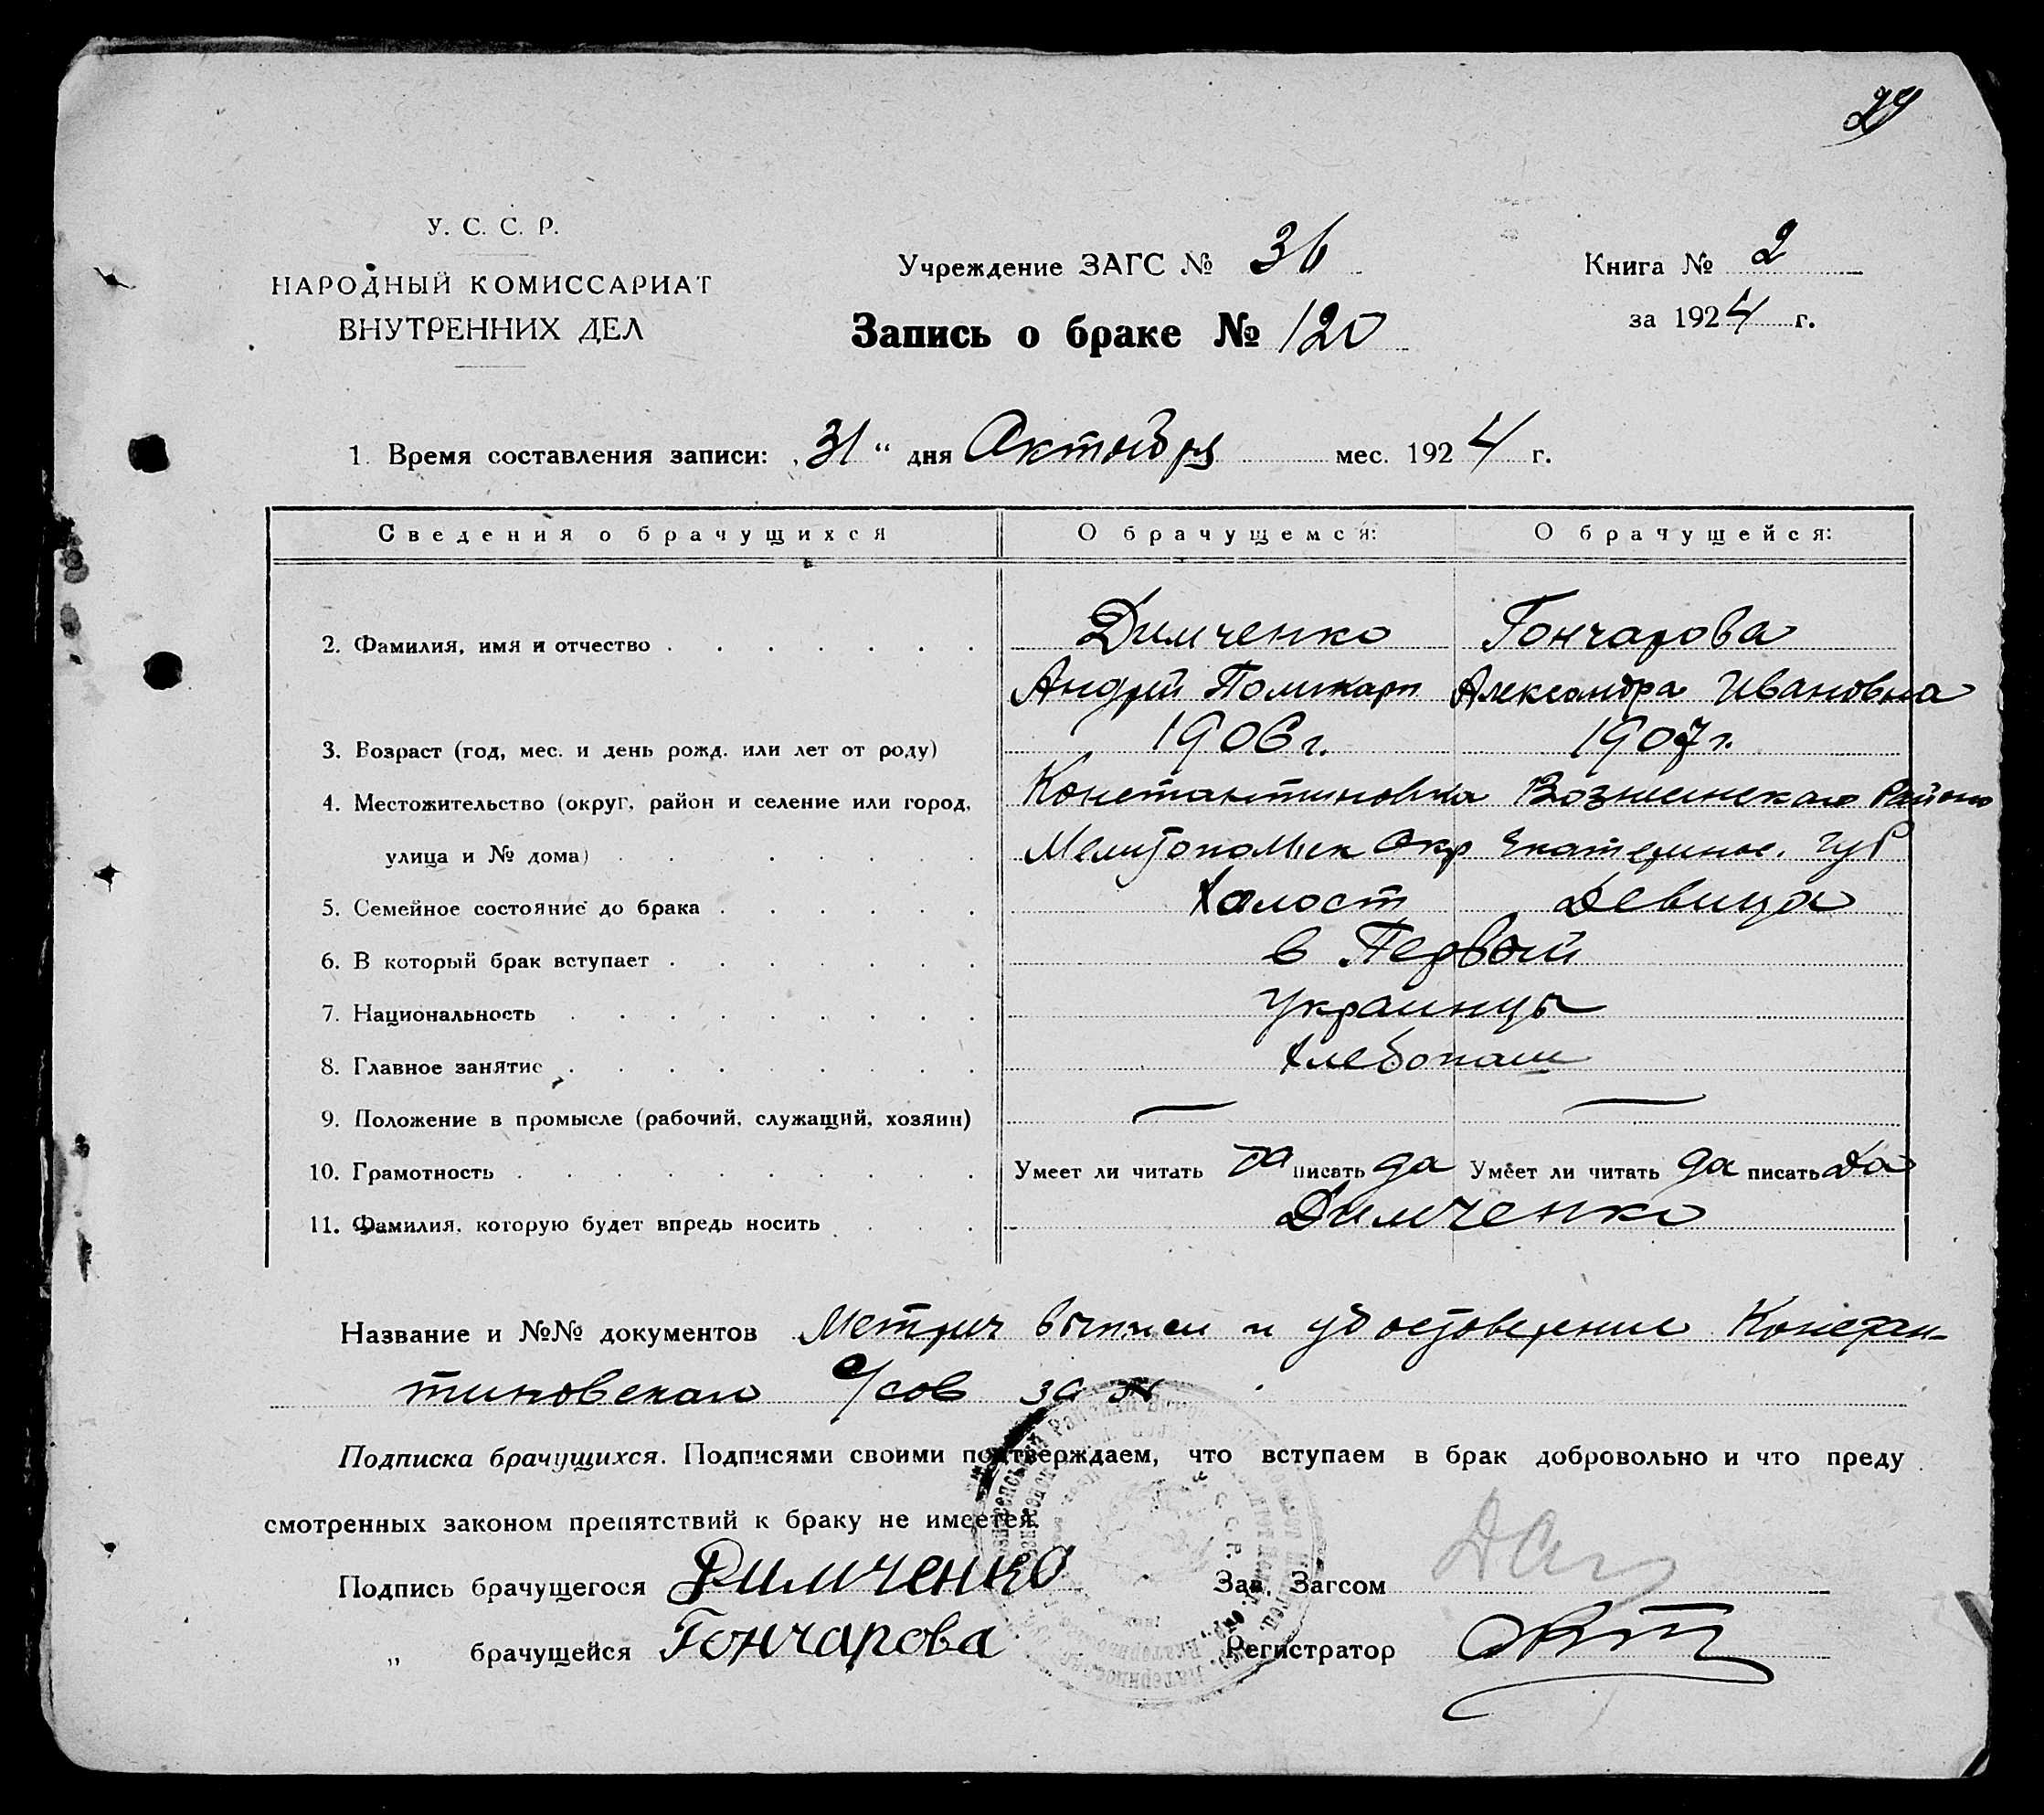 29
У. С. С. Р.
НАРОДНЫЙ КОМИССАРИАТ
ВНУТРЕННИХ ДЕЛ
Учреждение ЗАГС № 36
Запись о браке № 120
Книга № 2
за 1924 г.
1. Время составления записи: „31“ дня Октября мес. 1924 г.
Сведения о брачущихся О брачущемся: О брачущейся:
2. Фамилия, имя и отчество Димченко Гончарова
Андрей Поликарп Александра Ивановна
3. Возраст (год, мес. и день рожд. или лет от роду) 1906 г. 1907 г.
4. Местожительство (округ, район и селение или город, Константиновка Вознесенского Района
улица и № дома) Мелитопольск Окр Екатеринос. губ
5. Семейное состояние до брака Холост Девица
6. В который брак вступает в Первый
7. Национальность Украинцы
8. Главное занятие Хлебопаш
9. Положение в промысле (рабочий, служащий, хозяин) — —
10. Грамотность Умеет ли читать да писать да Умеет ли читать да писать да
11. Фамилия, которую будет впредь носить Димченко
Название и №№ документов Метрич выписи и удостоверение Констан-
тиновского с/сов за №
Подписка брачущихся. Подписями своими подтверждаем, что вступаем в брак добровольно и что преду
смотренных законом препятствий к браку не имеется.
Подпись брачущегося Димченко Зав. Загсом
„ брачущейся Гончарова Регистратор